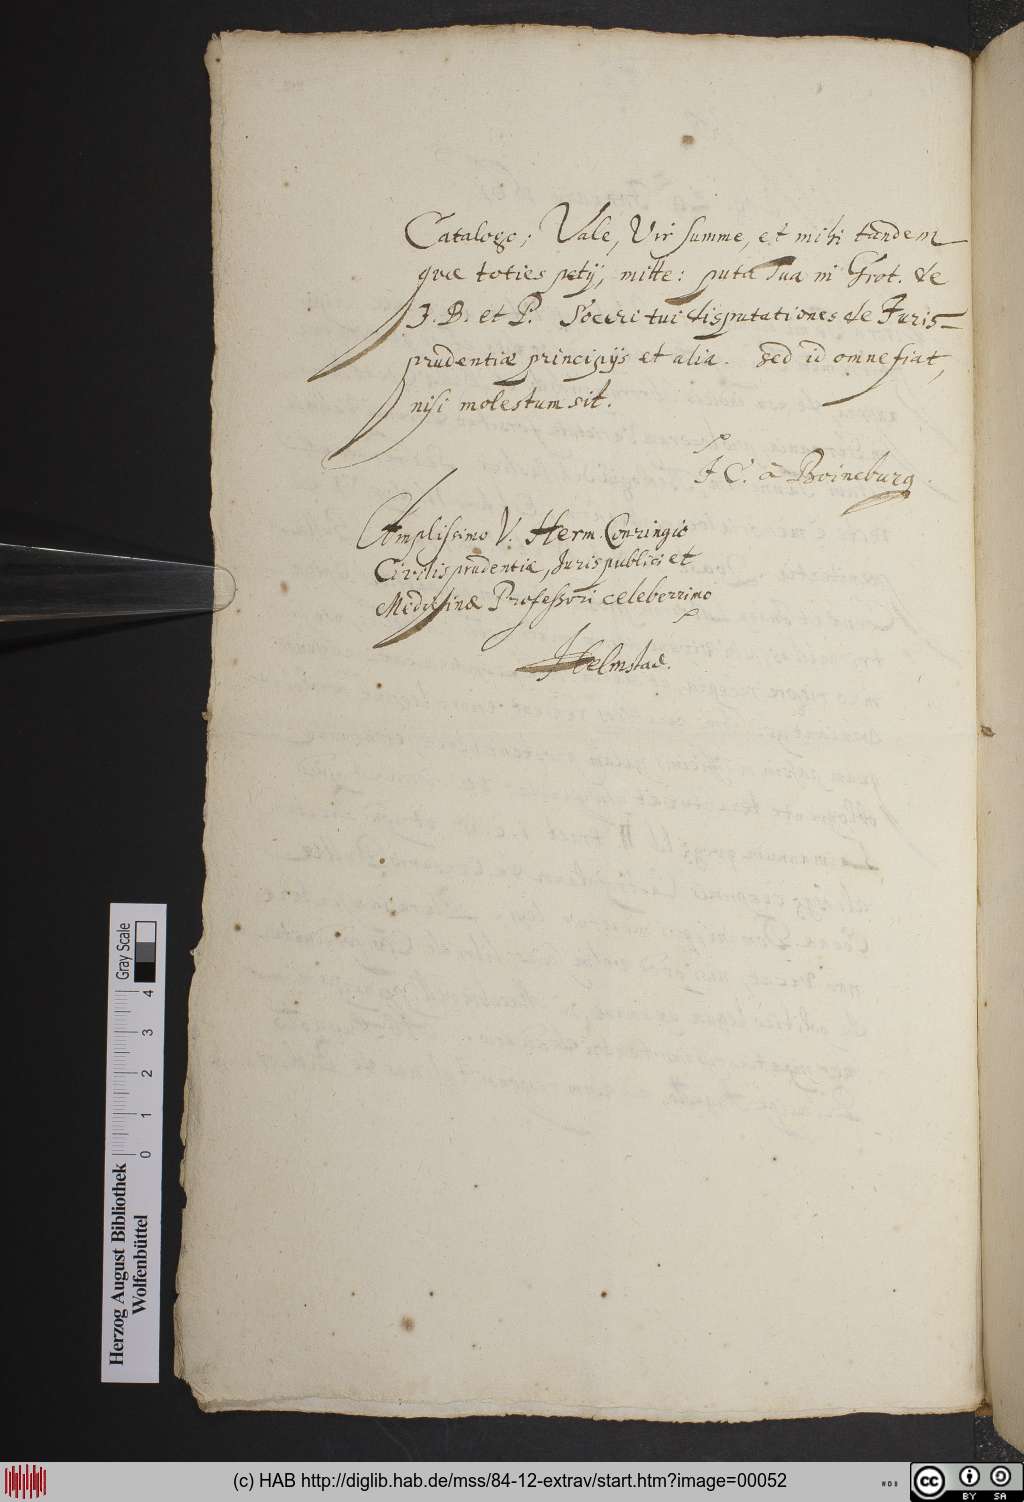 Catalogo; Vale, Vir summe, et mihi tandem
quæ toties petij, mitte: puta Tua in Grot. de
J. B. et P. Soceri tui disputationes de Juris-
prudentiæ principijs et alia. sed id omne fiat,
nisi molestum sit.
J C. à Boineburg.
Amplissimo V. Herm. Conringio
Civilis prudentiæ, Juris publici et
Medicinæ Professori celeberrimo
Helmstad.
Gray Scale
4
3
2
1
0
Herzog August Bibliothek
Wolfenbüttel
(c) HAB http://diglib.hab.de/mss/84-12-extrav/start.htm?image=00052
cc BY SA